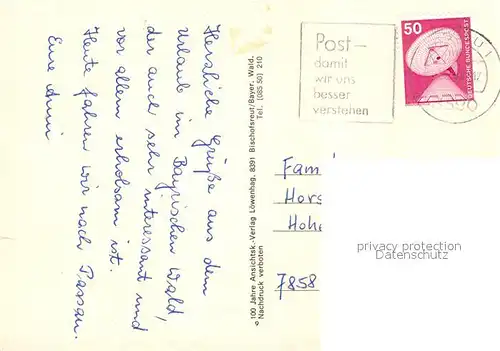 Herzliche Grüße aus dem
Urlaub im Bayrischen Wald,
der auch sehr interessant und
vor allem erholsam ist.
Heute fahren wir nach Passau.
Eure Anni
© 100 Jahre Ansichtsk.-Verlag Löwenhag, 8391 Bischofsreut/Bayer. Wald,
Tel. (085 50) 210
Nachdruck verboten
Post-
damit
wir uns
besser
verstehen
50
DEUTSCHE BUNDESPOST
Fami
Hors
Hohe
7858
privacy protection
Datenschutz